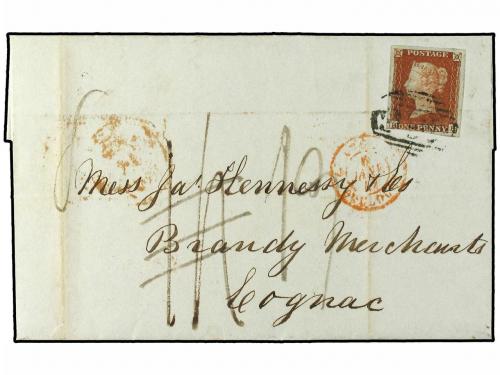 POSTAGE
ONE PENNY
Mess Jas Hennessy & Co
Brandy Merchants
Cognac